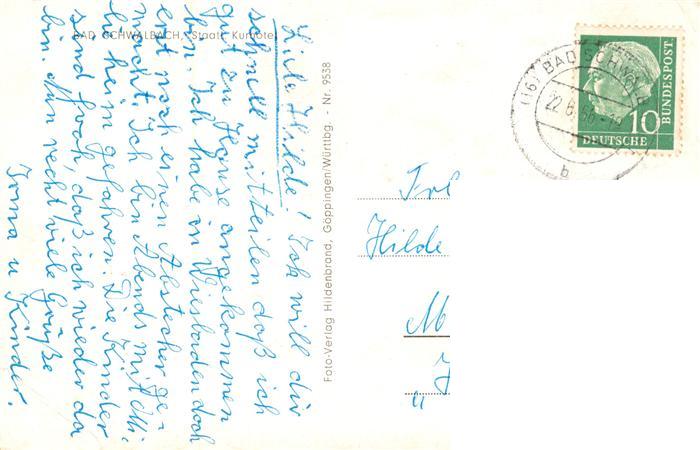 BAD SCHWALBACH, Staatl. Kurhotel
Liebe Hilde! Ich will dir
schnell mitteilen daß ich
gut zu Hause angekommen
bin. Ich habe in Wiesbaden doch
erst noch einen Abstecher ge-
macht. Ich bin Abends mit Olli
heim gefahren. Die Kinder
sind froh, daß ich wieder da
bin. Nun recht viele Grüße
Irma u Kinder.
Foto-Verlag Hildenbrand, Göppingen/Württbg. - Nr. 9538
(16) BAD SCHWALB
22. 6.
b
10
DEUTSCHE
BUNDESPOST
Frl
Hilde
M
"